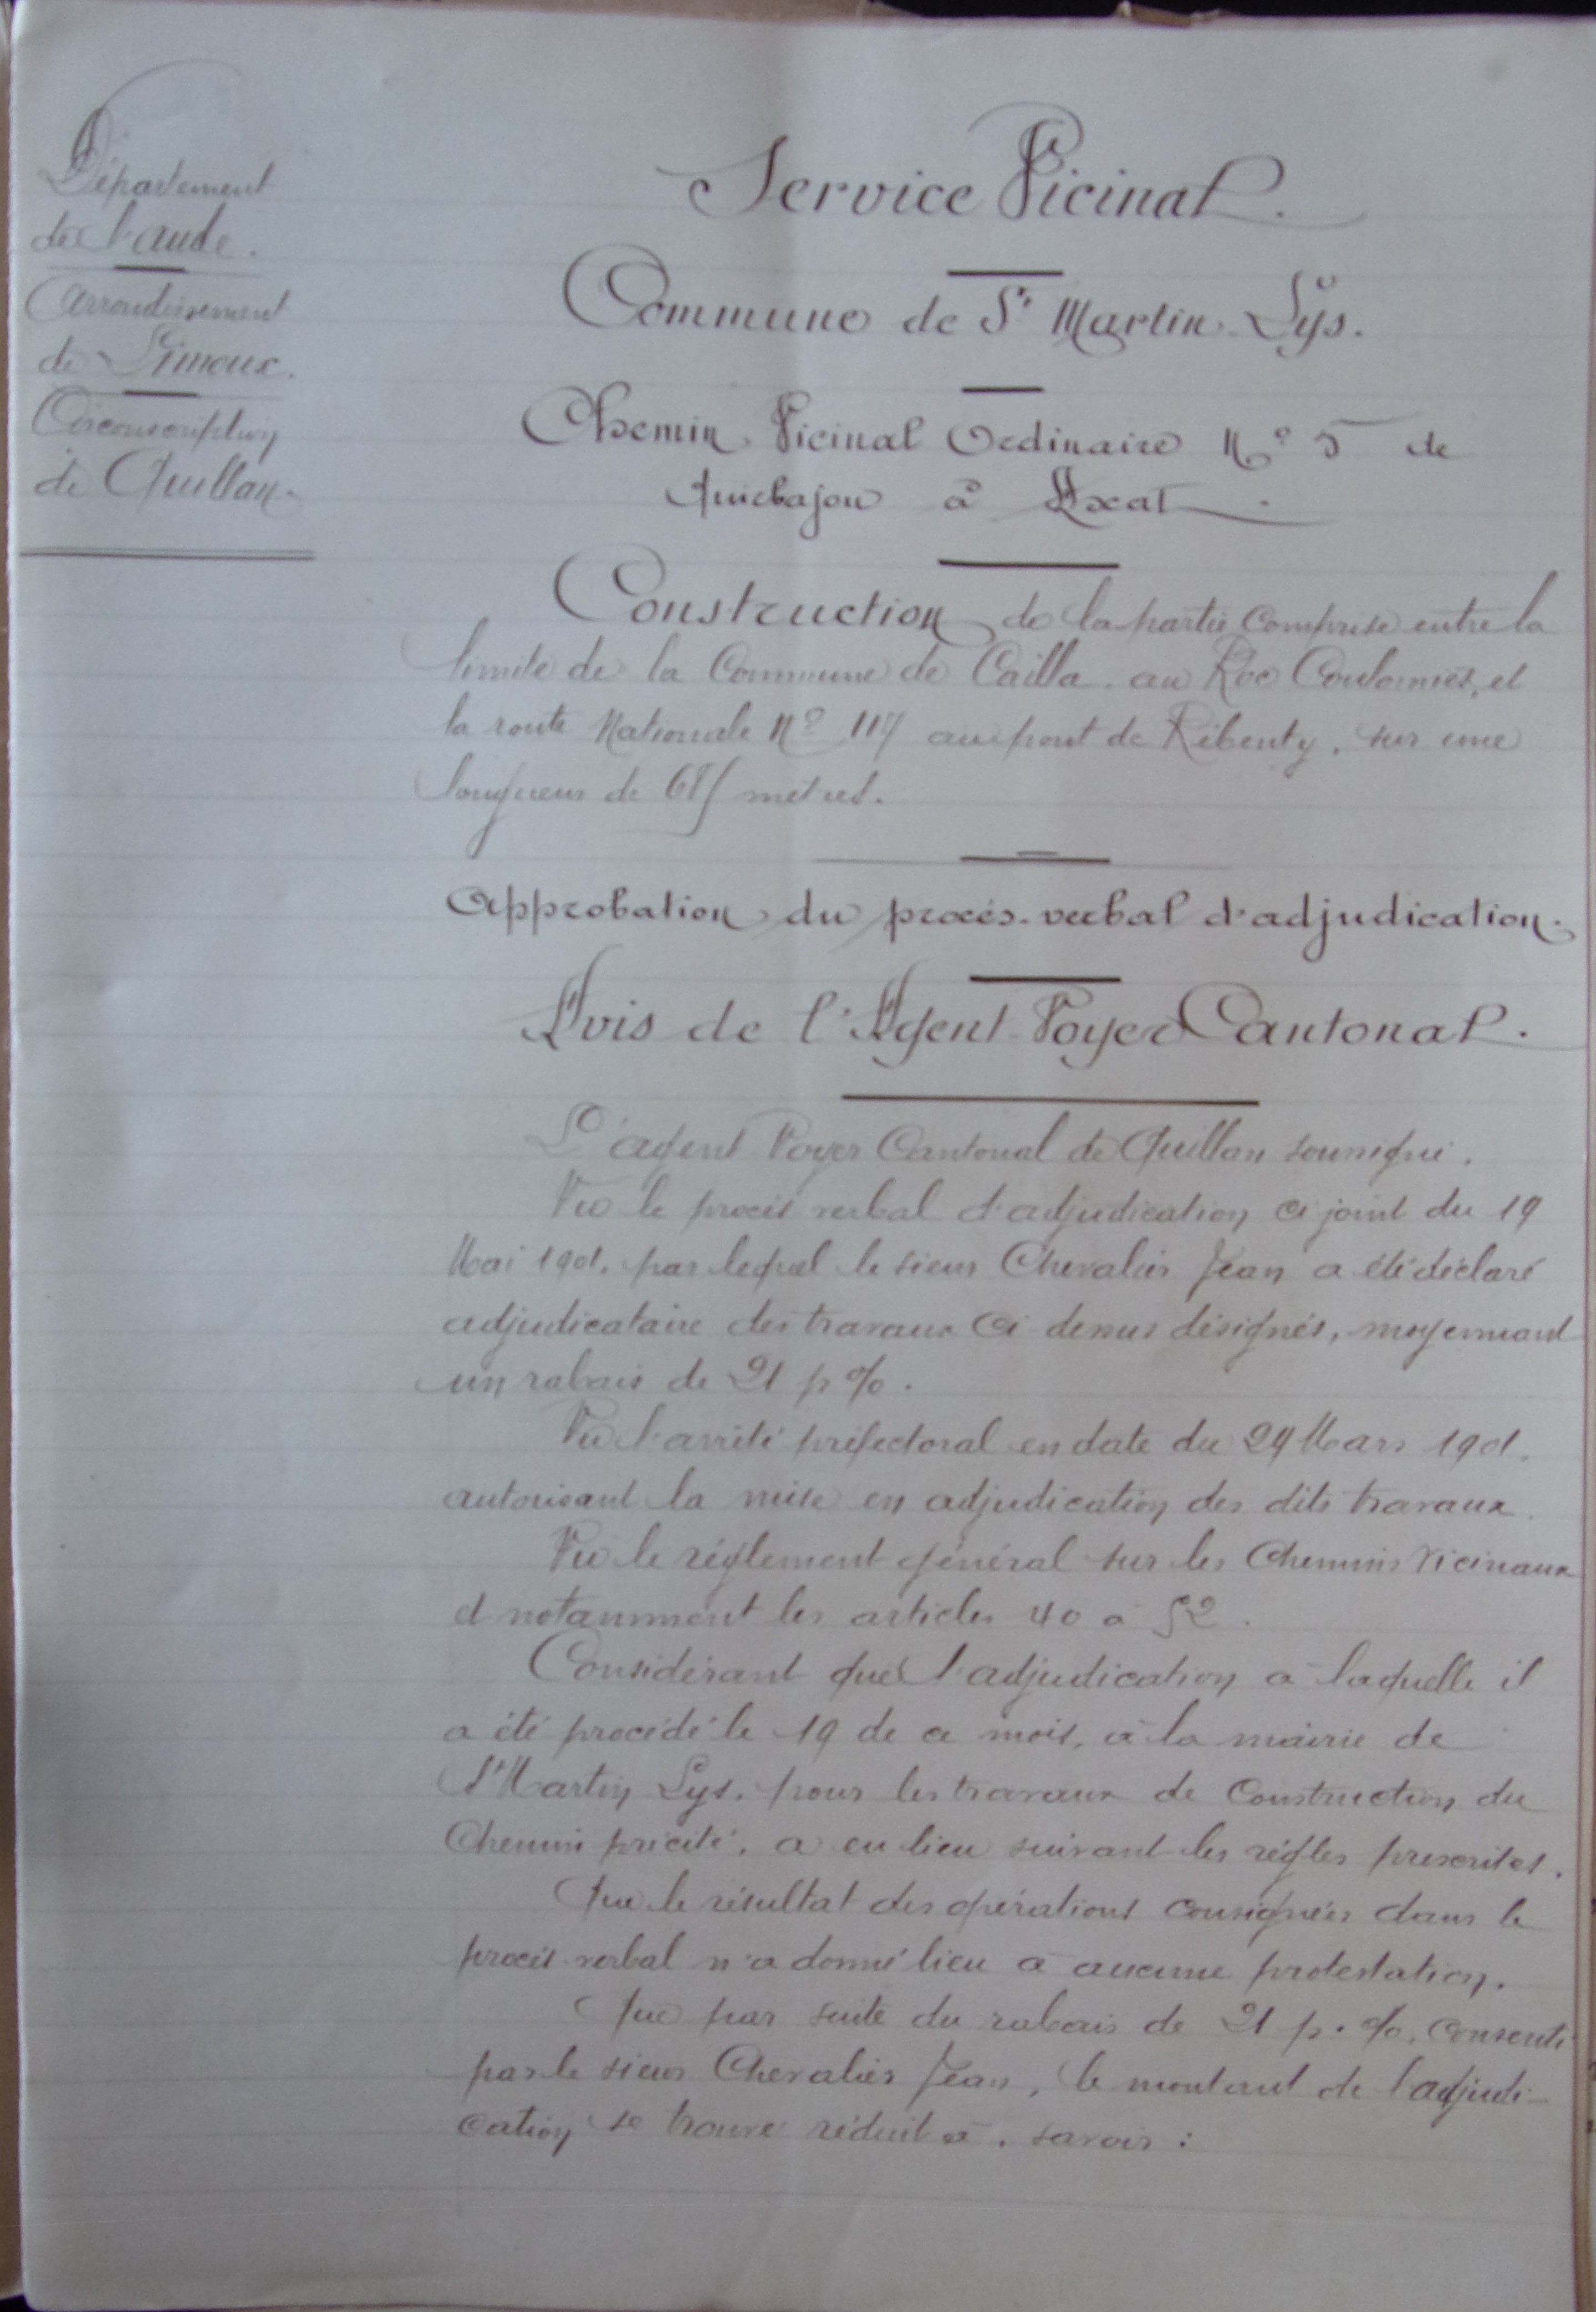 Département
de l'aude.
Arrondissement
de Limoux.
Circonscription
de Quillan.
Service Vicinal.
Commune de St Martin Lys.
Chemin Vicinal Ordinaire No 5 de
Quirbajou à Axat.
Construction de la partie comprise entre la
limite de la Commune de Cailla. au Roc Coulomiés, et
la route Nationale No 117 au pont de Rébenty, sur une
longueur de 685 mètres.
Approbation du procès-verbal d'adjudication.
Avis de l'Agent-Voyer Cantonal.
L'agent Voyer Cantonal de Quillan soussigné.
Vu le procès verbal d'adjudication ci joint du 19
Mai 1901. par lequel le sieur Chevalier Jean a été déclaré
adjudicataire des travaux ci dessus désignés, moyennant
un rabais de 21 p %.
Vu l'arrêté préfectoral en date du 29 Mars 1901.
autorisant la mise en adjudication des dits travaux.
Vu le réglement général sur les Chemins Vicinaux
et notamment les articles 40 à 52.
Considérant que l'adjudication à laquelle il
a été procédé le 19 de ce mois, à la mairie de
St Martin Lys. pour les travaux de Construction du
Chemin précité, a eu lieu suivant les régles prescrites.
Que le résultat des opérations consignées dans le
procès-verbal n'a donné lieu à aucune protestation.
Que par suite du rabais de 21 p. %. consenti
par le sieur Chevalier Jean, le montant de l'adjudi-
cation se trouve réduit à. savoir :